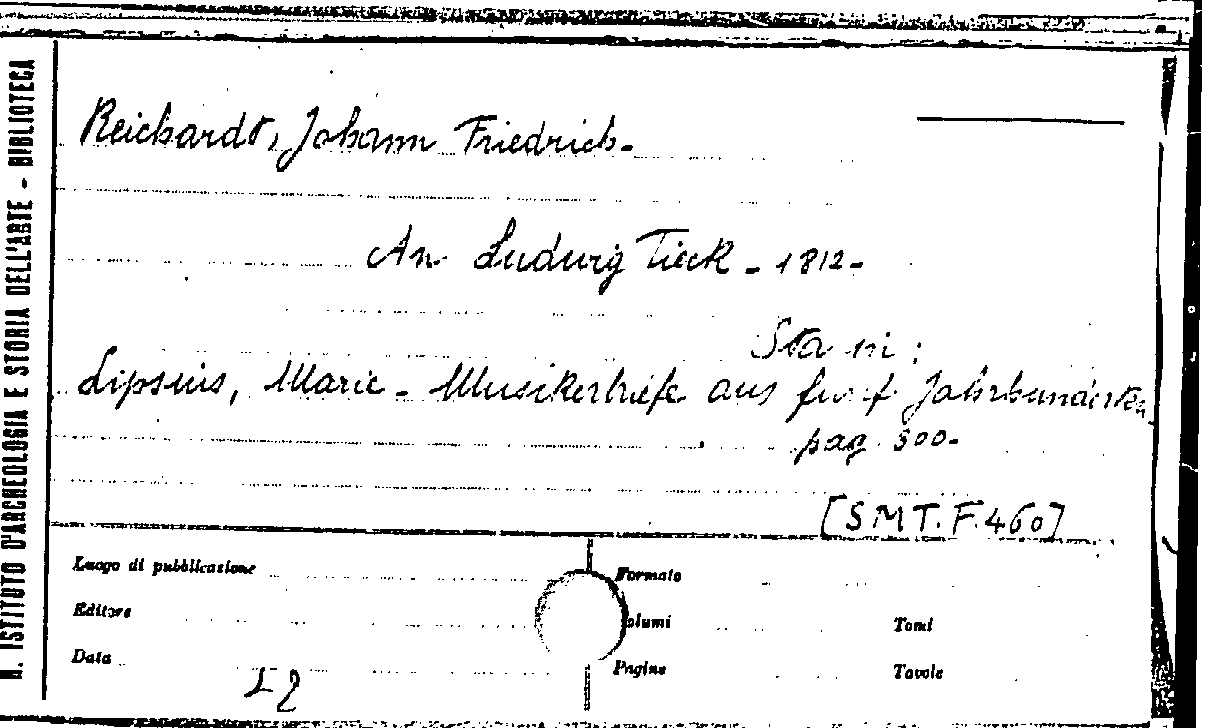 R. ISTITUTO D'ARCHEOLOGIA E STORIA DELL'ARTE - BIBLIOTECA
Reichardt, Johann Friedrich.
An Ludwig Tieck - 1812-
Sta in:
Lipsius, Marie - Musikerbriefe aus fünf Jahrhunderten
pag. 300-
[SMT.F.460]
Luogo di pubblicazione
Formato
Editore
olumi
Tomi
Data
Pagine
Tavole